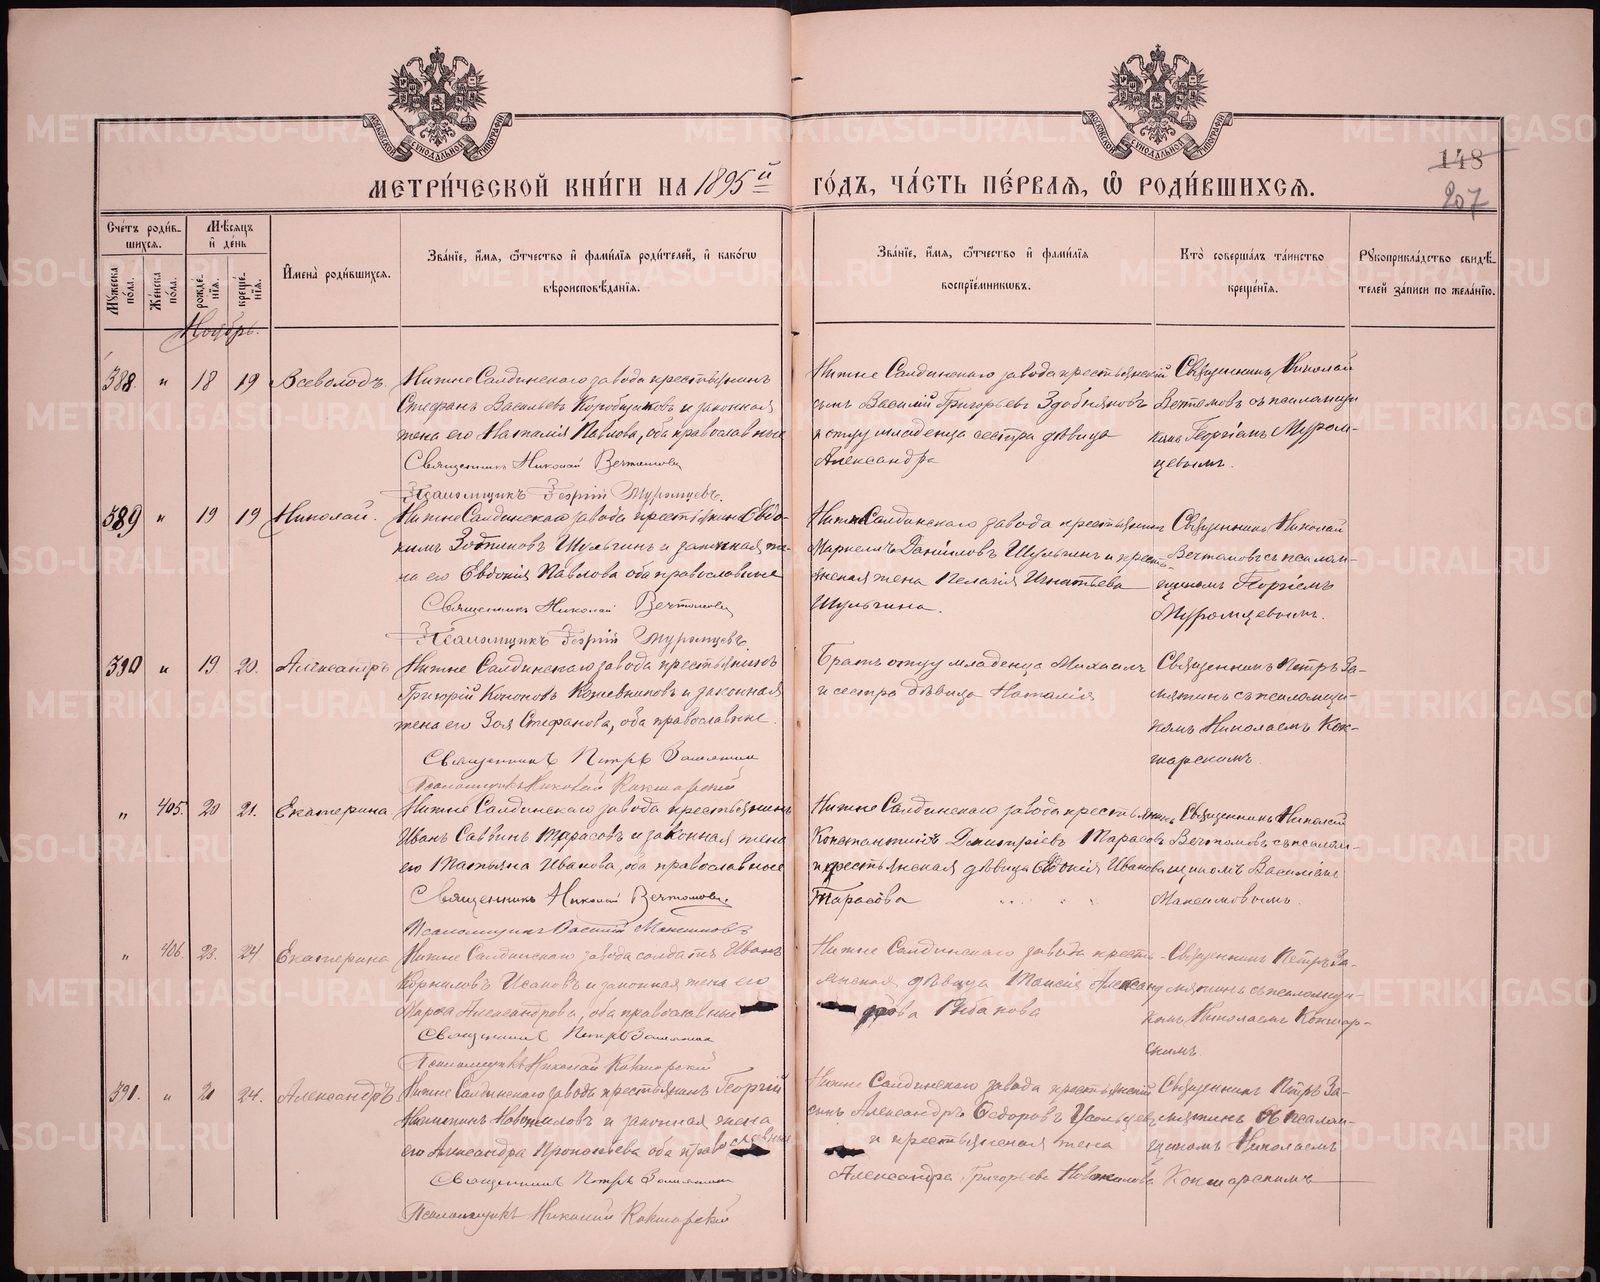 МЕТРИ́ЧЕСКОЙ КНИ́ГИ НА 1895й ГО́ДЪ, ЧА́СТЬ ПЕ́РВАѦ, Ѡ҆ РОДИ́ВШИХСѦ.
148
207
Сче́тъ роди́в-
шихсѧ.
Мꙋжеска по́ла.
Же́нска по́ла.
Мѣ́сѧцъ
и҆ де́нь
рожде́-
нїѧ.
креще́-
нїѧ.
И҆мена̀ роди́вшихсѧ.
Зва́нїе, и҆́мѧ, ѻ҆́тчество и҆ фами́лїѧ роди́телей, и҆ како́гѡ
вѣроисповѣ́данїѧ.
Зва́нїе, и҆́мѧ, ѻ҆́тчество и҆ фами́лїѧ
воспрїе́мникѡвъ.
Кто̀ соверша́лъ та́инство
креще́нїѧ.
Рꙋкоприкла́дство свидѣ́-
телей за́писи по жела́нїю.
Ноябрь.
388 " 18 19 Всеволодъ.
Нижне Салдинскаго завода крестьянинъ
Стефанъ Васильевъ Коробщиковъ и законная
жена его Наталія Павлова, оба православные
Священникъ Николай Вечтомовъ
Псаломщикъ Георгій Муромцевъ.
Нижне Салдинскаго завода крестьянскій
сынъ Василій Григорьевъ Здобняковъ
и отцу младенца сестра дѣвица
Александра
Священникъ Николай
Вечтомовъ съ псаломщи-
комъ Георгіемъ Муром-
цевымъ.
389 " 19 19 Николай.
Нижне Салдинскаго завода крестьянинъ Евдо-
кимъ Зотиковъ Шульгинъ и законная же-
на его Евдокія Павлова оба православные
Священникъ Николай Вечтомовъ
Псаломщикъ Георгій Муромцевъ.
Нижне Салдинскаго завода крестьянинъ
Маркелъ Даниловъ Шульгинъ и кресть-
янская жена Пелагія Игнатьева
Шульгина.
Священникъ Николай
Вечтомовъ съ псалом-
щикомъ Георгіемъ
Муромцевымъ.
390 " 19 20. Александръ
Нижне Салдинскаго завода крестьянинъ
Григорій Кононовъ Кожевниковъ и законная
жена его Зоя Стефанова, оба православные.
Священникъ Петръ Замятинъ
Псаломщикъ Николай Кокшарскій
Братъ отцу младенца Михаилъ
и сестра дѣвица Наталія
Священникъ Петръ За-
мятинъ съ псаломщи-
комъ Николаемъ Кок-
шарскимъ.
" 405. 20 21. Екатерина
Нижне Салдинскаго завода крестьянинъ
Иванъ Саввинъ Тарасовъ и законная жена
его Татьяна Иванова, оба православные
Священникъ Николай Вечтомовъ
Псаломщикъ Василій Максимовъ
Нижне Салдинскаго завода крестьянинъ
Константинъ Димитріевъ Тарасовъ
и крестьянская дѣвица Евдокія Иванова
Тарасова
Священникъ Николай
Вечтомовъ съ псалом-
щикомъ Василіемъ
Максимовымъ.
" 406. 23. 24 Екатерина
Нижне Салдинскаго завода солдатъ Иванъ
Корниловъ Исаковъ и законная жена его
Марѳа Александрова, оба православные
Священникъ Петръ Замятинъ
Псаломщикъ Николай Кокшарскій
Нижне Салдинскаго завода кресть-
янская дѣвица Таисія Александ
рова Рыбакова
Священникъ Петръ За-
мятинъ съ псаломщи-
комъ Николаемъ Кокшар-
скимъ.
391. " 21 24. Александръ
Нижне Салдинскаго завода крестьянинъ Георгій
Новожиловъ и законная жена
его Александра Прокопьева оба православные
Священникъ Петръ Замятинъ
Псаломщикъ Николай Кокшарскій
Нижне Салдинскаго завода крестьянскій
сынъ Александръ Ѳедоровъ Усольцевъ
и крестьянская жена
Александра Григорьева Новожилова
Священникъ Петръ За-
мятинъ съ псалом-
щикомъ Николаемъ
Кокшарскимъ